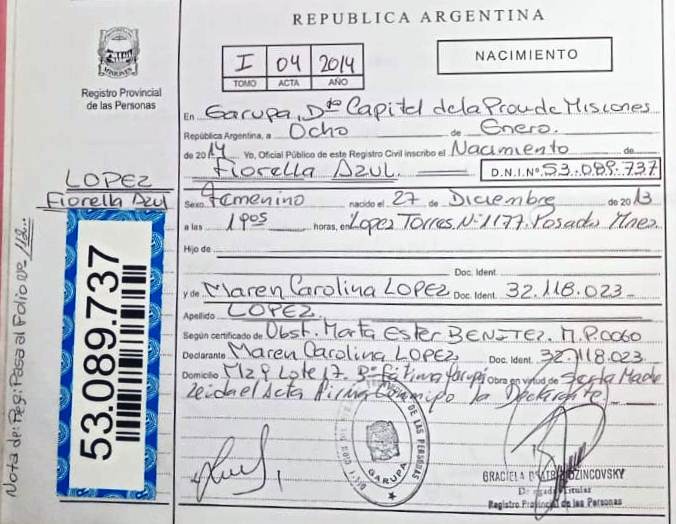 REPUBLICA ARGENTINA
MISIONES
Registro Provincial
de las Personas
I 04 2014
TOMO ACTA AÑO
NACIMIENTO
En Garupa, Dto Capital de la Prov. de Misiones
República Argentina, a Ocho de Enero.
de 2014 Yo, Oficial Público de este Registro Civil inscribo el Nacimiento de
Fiorella Azul. D.N.I.Nº 53.089.737
LOPEZ
Fiorella Azul
Sexo Femenino nacido el 27 de Diciembre de 2013
a las horas, en Lopez Torres Nº 1177. Posadas Mnes.
Hijo de
Doc. Ident.
y de Maren Carolina LOPEZ Doc. Ident. 32.118.023
Apellido LOPEZ.
Según certificado de Obst. Marta Ester BENITEZ. M.P.0060
Declarante Maren Carolina LOPEZ Doc. Ident. 32.118.023
Domicilio Mz 9 Lote 17. Bº Fátima Garupá Obra en virtud de Madre
Leida el Acta Firma Conmigo la Declarante
53.089.737
Nota de: Reg: Pasa al Folio Nº
DE LAS PERSONAS
GARUPA
GRACIELA
Titular
Registro Provincial de las Personas